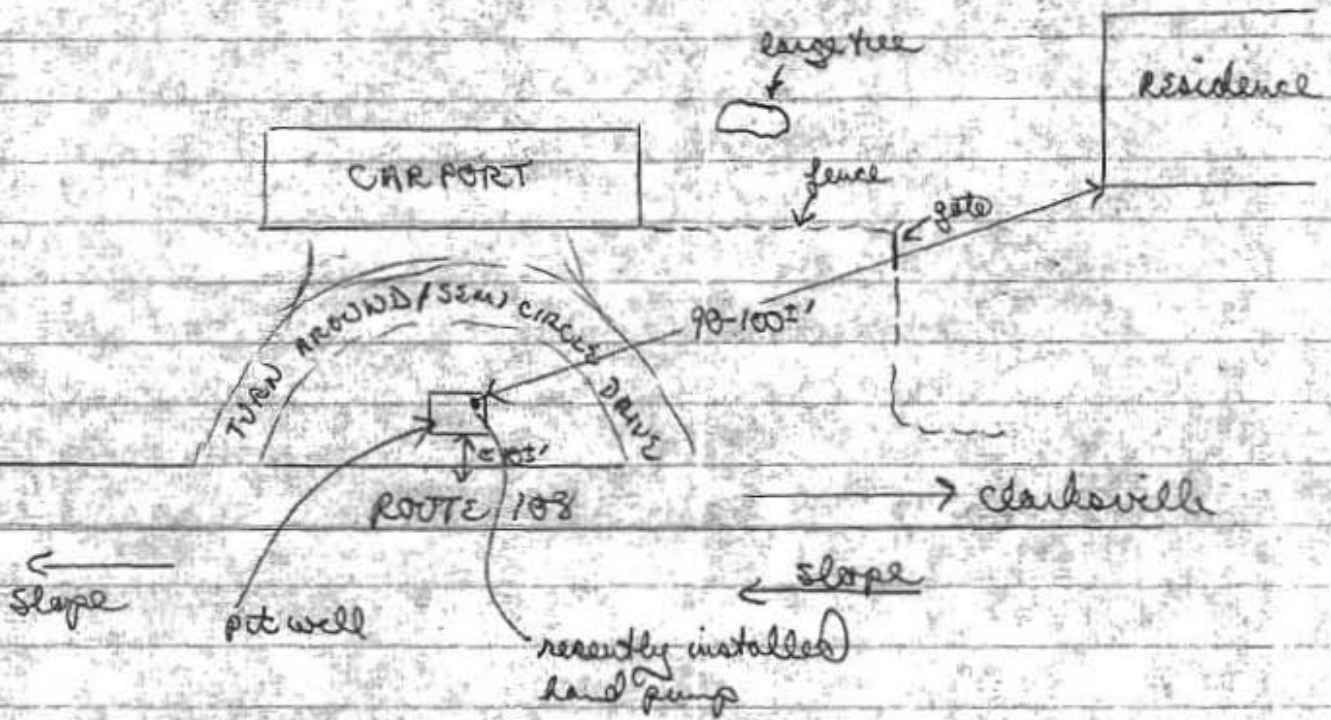 large tree
Residence
CARPORT
fence
gate
TURN AROUND/SEMI CIRCLE DRIVE
90-100±'
ROUTE 108
Clarksville
slope
slope
pit well
recently installed
hand pump